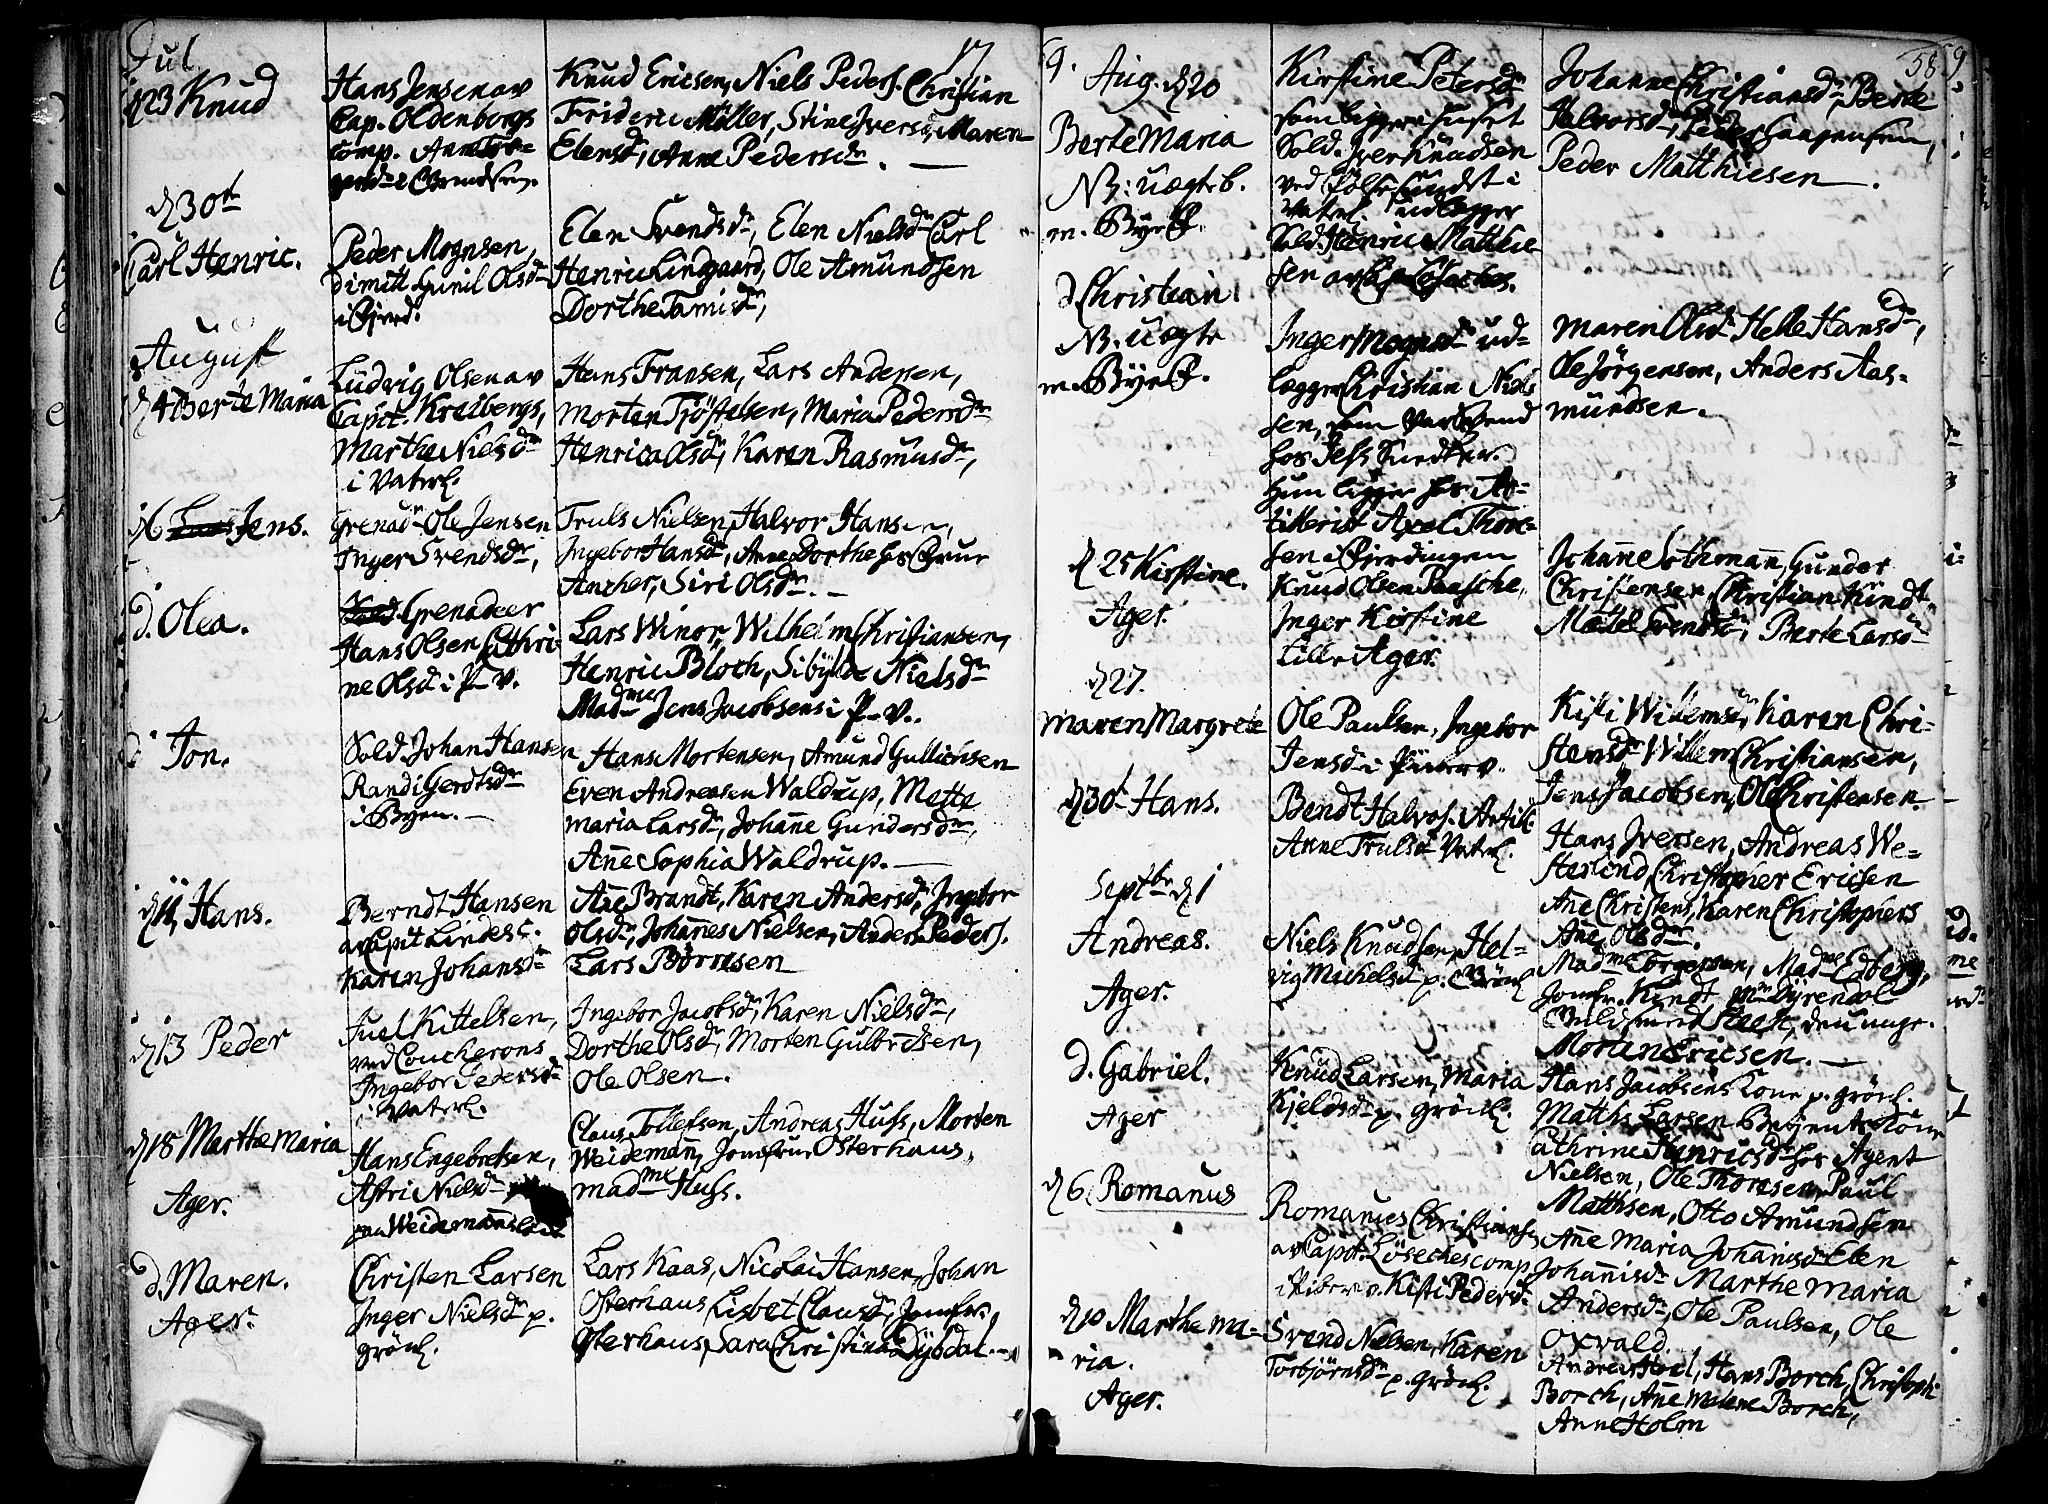 Jul.
17
d 23 Knud
Hans Jensen av
Cap. Oldenborgs
Comp. Anne
Knud Ericsen, Niels Peders. Christian
Frideric Møller, Stine Iversd, Maren
Elensdr, Anne Pedersdr. —
d 30t
Carl Henric.
Peder Mognsen,
dimitt. Gunil Olsdr
i Fjerd.
Elen Svendsdr, Elen Nielsdr Carl
Henric Lindgaard, Ole Amundsen
Dorthe Tamisdr,
August
d 4 Berte Maria
Ludvig Olsen av
Capit. Kreibergs,
Marthe Nielsdr
i Vaterl.
Hans Fransen, Lars Andersen,
Morten Tjøstelsen, Maria Pedersdr
Henrica Olsdr, Karen Rasmusdr,
d 6 Lars Jens.
Grenadr Ole Jensen
Inger Svendsdr,
Truls Nielsen, Halvor Hansen,
Ingebor Hansdr, Anne Dorthe hos Frue
Ancher, Siri Olsdr. —
d. Olea.
Sold Grenadeer
Hans Olsen Cathri-
ne Olsdr i P–v.
Lars Winor, Wilhelm Christiansen,
Henric Bloch, Sibylle Nielsdr
Madme Jens Jacobsens i P–v.
d Jon.
Sold. Johan Hansen
Randi Gerdtsdr
i Byen. —
Hans Mortensen, Amund Gullichsen
Even Andreasen Waldrup, Mette
Maria Larsdr, Johanne Gundersdr,
Anne Sophia Waldrup. —
d 11, Hans.
Berndt Hansen
av Capit Lindes C.
Karen Johansdr
Anne Brandt, Karen Andersdr, Ingebor
Olsdr, Johannes Nielsen, Anders Peders.
Lars Børresen
d 13 Peder
Juel Kittelsen,
ved Coucherons
Ingebor Pedersdr
i Vaterl.
Ingebor Jacobsdr, Karen Nielsdr,
Dorthe Olsdr, Morten Gulbrdsen,
Ole Olsen.
d 18 Marthe Maria
Ager.
Hans Engebretsen,
Astri Nielsdr
paa Weidemans
Claus Tollefsen, Andreas Huss, Morten
Weideman, Jomfrue Osterhaus,
madme Huss.
d. Maren.
Ager.
Christen Larsen
Inger Nielsdr p.
grönl.
Lars Kaas, Nicolai Hansen, Johan
Osterhaus, Lisbet Clausdr, Jomfr.
Osterhaus, Sara Christina Dybdal. —
9.
589
Aug. d 20
Berte Maria
NB: uægte b.
m. Byrd.
Kirstine Petersdr
som ligger i huset
Sold. Iver Knudsen
ved
Vaterl. udlægger
Sold. Henric Matthie-
sen av
Johanne Christiansdr, Berte
Halvorsdr, Peder Haagensen,
Peder Matthiesen —.
d Christian.
NB. uægte
m. Byrd.
Inger Mognsdr ud-
lægger Christian Niel-
sen, som var Svend
hos Snedker.
Hun ligger hos Ar-
tillerist Axel Thore-
sen i Fierdingen
Maren Olsdr Helle Hansdr,
Ole Jörgensen, Anders Aas-
mundsen.
d 25 Kirstine.
Ager.
Knud Olsen Paasche,
Inger Kirstine
Lille Ager.
Johanne Lothmann, Gunder
Christensen, Christian Kindt,
Mattel Svendsdr, Berte Larsdr
d 27.
Maren Margrete
Ole Paulsen, Ingebor
Jensdr i
Kisti Willemsdr, Karen Chri-
stensdr Willem Christiansen,
Jens Jacobsen, Ole Christensen
d 30t Hans.
Bendt Halvors. Artil.
Anne Trulsdr Vaterl.
Hans Iversen, Andreas We-
sterlind, Christopher Ericsen
Ane Christens, Karen Christophers
Anne Olsdr.
Septbr d 1
Andreas.
Ager.
Niels Knudsen, Hel-
vig Michelsdr p. Grönl
Madme Torgersen, Madme Edberg,
Jomfr. Kindt,
Guldsmed den unge.
Morten Ericsen. —
d. Gabriel.
Ager
Knud Larsen, Maria
Kjeldsdr p. grönl.
Hans Jacobsens Kone p. grönl.
Matths Larsen Kone
Cathrine Henricsdr hos Agent
Nielsen, Ole Thoresen, Paul
Matthsen, Otto Amundsen
d 6, Romanus
Romanus Christians.
av Capt. Løseches comp
i Pibervv. Kisti Pedersdr
Anne Maria Johannisdr Elen
Johannisdr Marthe Maria
Andersdr, Ole Paulsen, Ole
Oxvald.
d 10 Marthe Ma-
ria.
Ager.
Svend Nielsen, Karen
Torbjörnsdr p. grönl.
Andreas Hoel, Hans Borch, Christoph
Borch, Anne Malene Borch,
Anne Holm